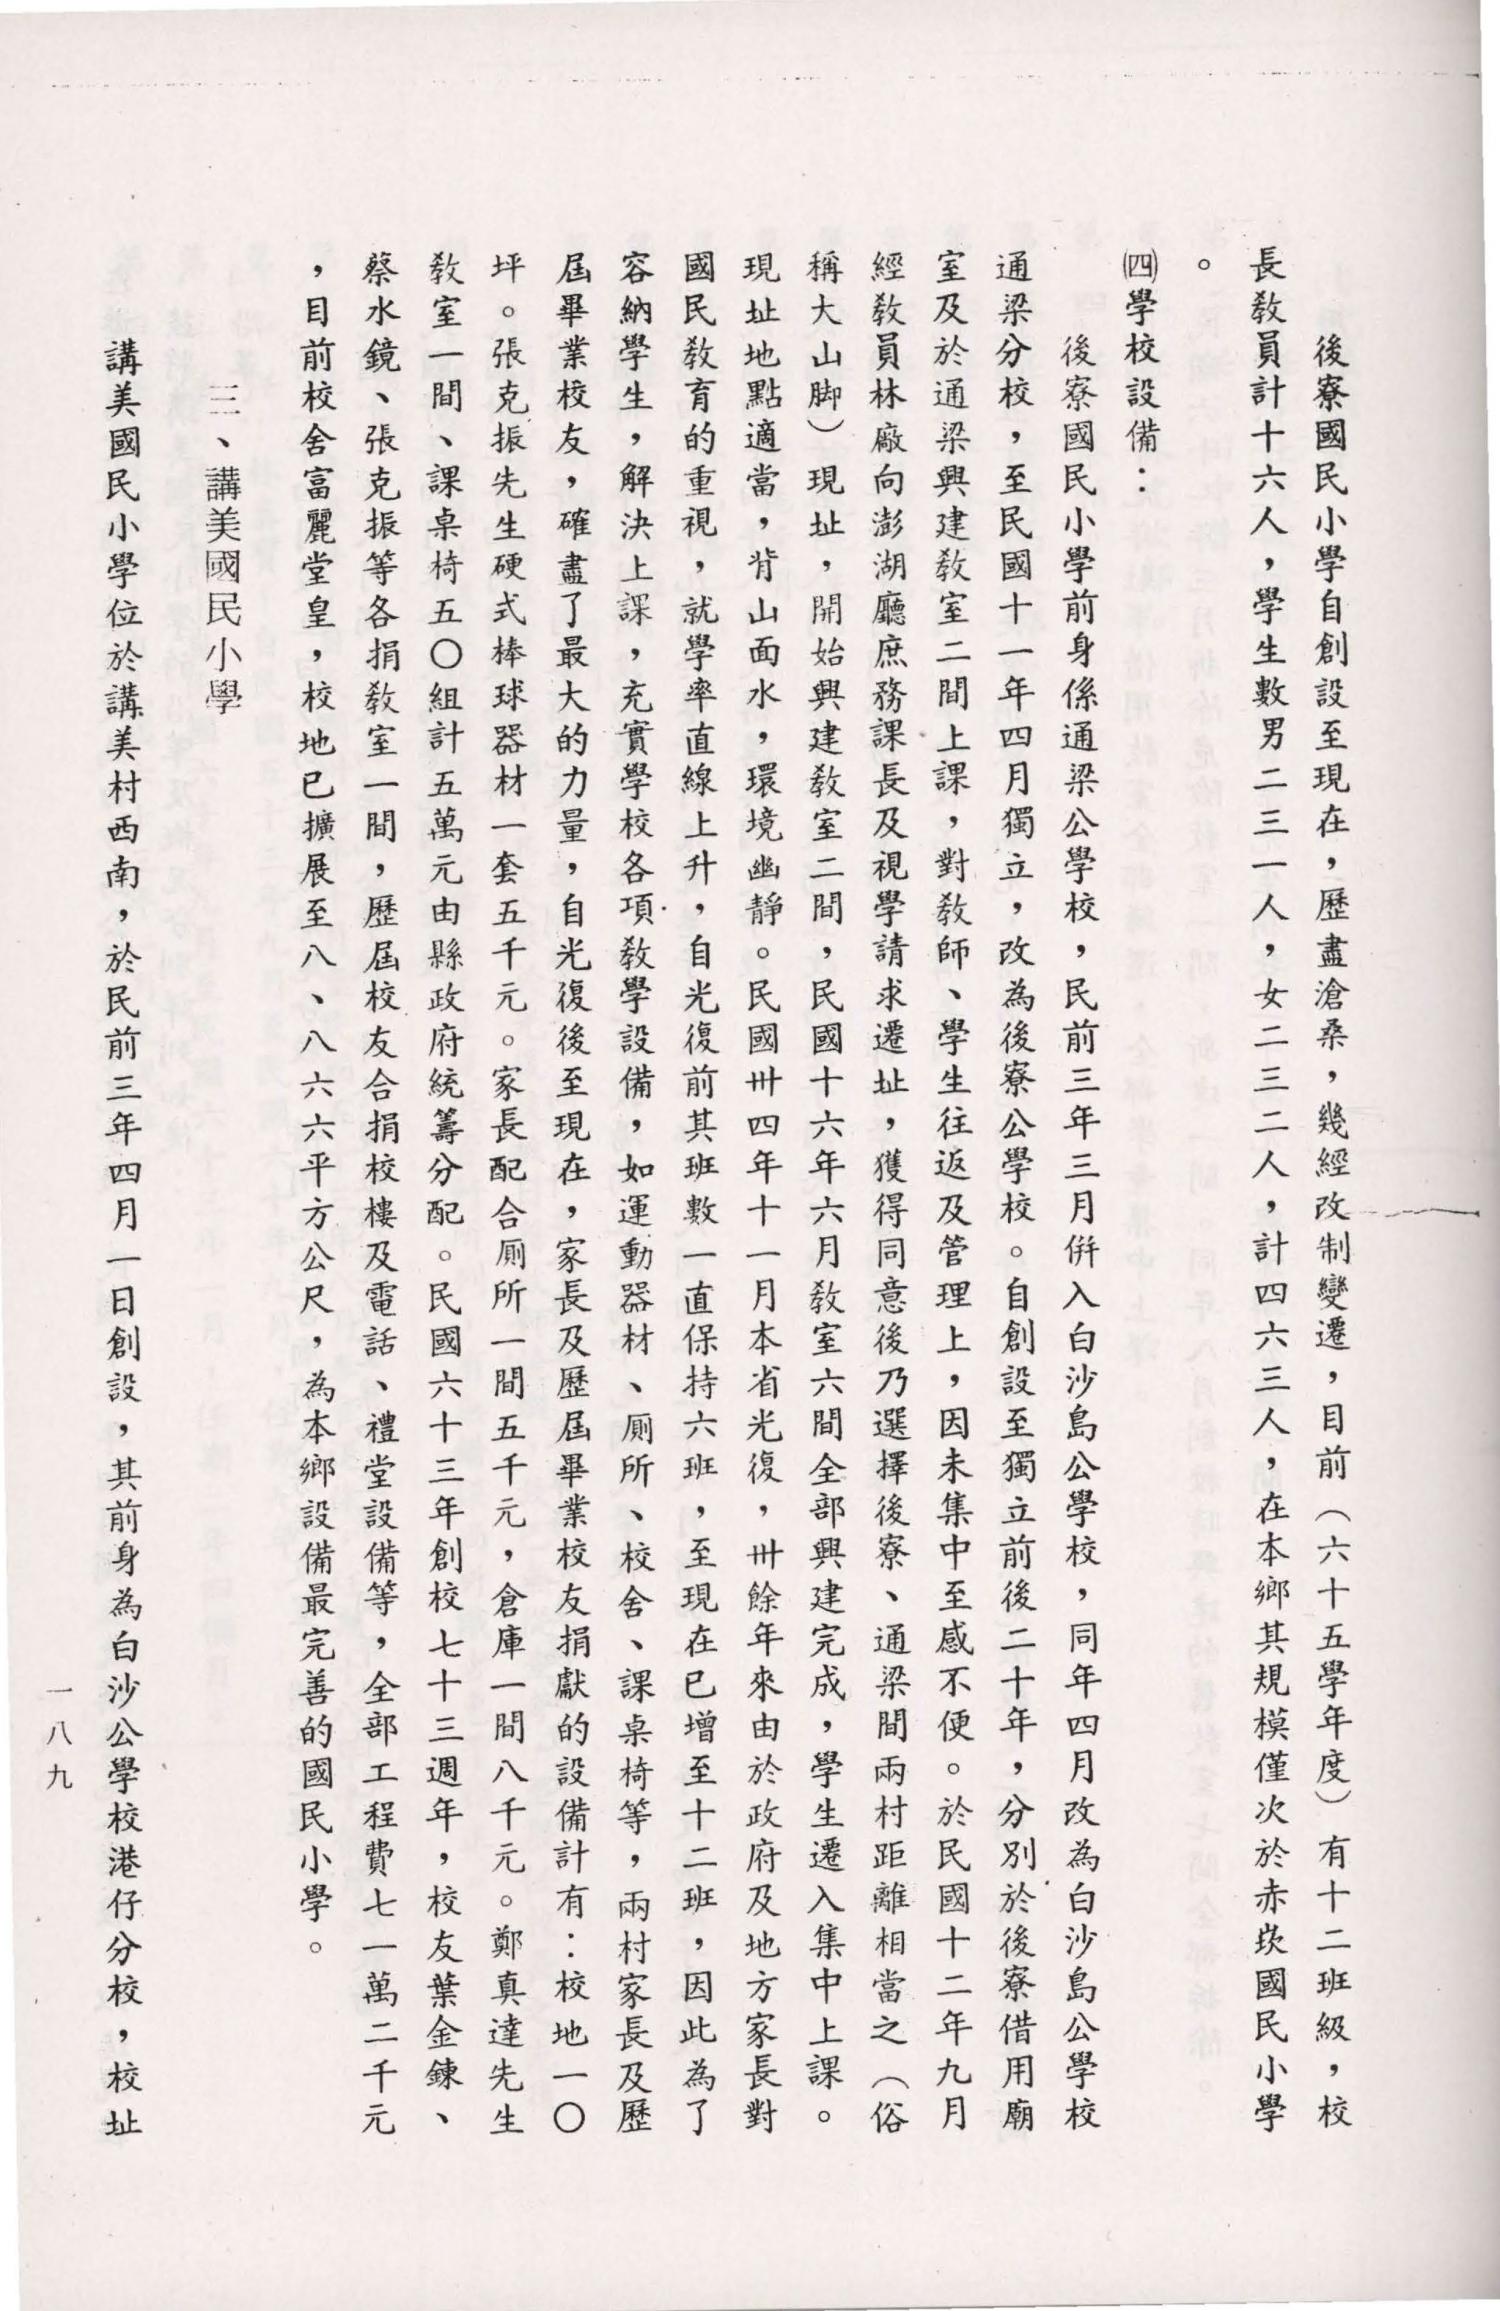 後寮國民小學自創設至現在，歷盡滄桑，幾經改制變遷，目前（六十五學年度）有十二班級，校
長教員計十六人，學生數男二三一人，女二三二人，計四六三人，在本鄉其規模僅次於赤崁國民小學
。
㈣學校設備：
後寮國民小學前身係通梁公學校，民前三年三月倂入白沙島公學校，同年四月改為白沙島公學校
通梁分校，至民國十一年四月獨立，改為後寮公學校。自創設至獨立前後二十年，分別於後寮借用廟
室及於通梁興建教室二間上課，對教師、學生往返及管理上，因未集中至感不便。於民國十二年九月
經教員林廠向澎湖廳庶務課長及視學請求遷址，獲得同意後乃選擇後寮、通梁間兩村距離相當之（俗
稱大山脚）現址，開始興建教室二間，民國十六年六月教室六間全部興建完成，學生遷入集中上課。
現址地點適當，背山面水，環境幽靜。民國卅四年十一月本省光復，卅餘年來由於政府及地方家長對
國民教育的重視，就學率直線上升，自光復前其班數一直保持六班，至現在已增至十二班，因此為了
容納學生，解決上課，充實學校各項教學設備，如運動器材、厠所、校舍、課桌椅等，兩村家長及歷
屆畢業校友，確盡了最大的力量，自光復後至現在，家長及歷屆畢業校友捐獻的設備計有：校地一〇
坪。張克振先生硬式棒球器材一套五千元。家長配合厠所一間五千元，倉庫一間八千元。鄭真達先生
教室一間、課桌椅五〇組計五萬元由縣政府統籌分配。民國六十三年創校七十三週年，校友葉金鍊、
蔡水鏡、張克振等各捐教室一間，歷屆校友合捐校樓及電話、禮堂設備等，全部工程費七一萬二千元
，目前校舍富麗堂皇，校地已擴展至八、八六六平方公尺，為本鄉設備最完善的國民小學。
三、講美國民小學
講美國民小學位於講美村西南，於民前三年四月一日創設，其前身為白沙公學校港仔分校，校址
一八九